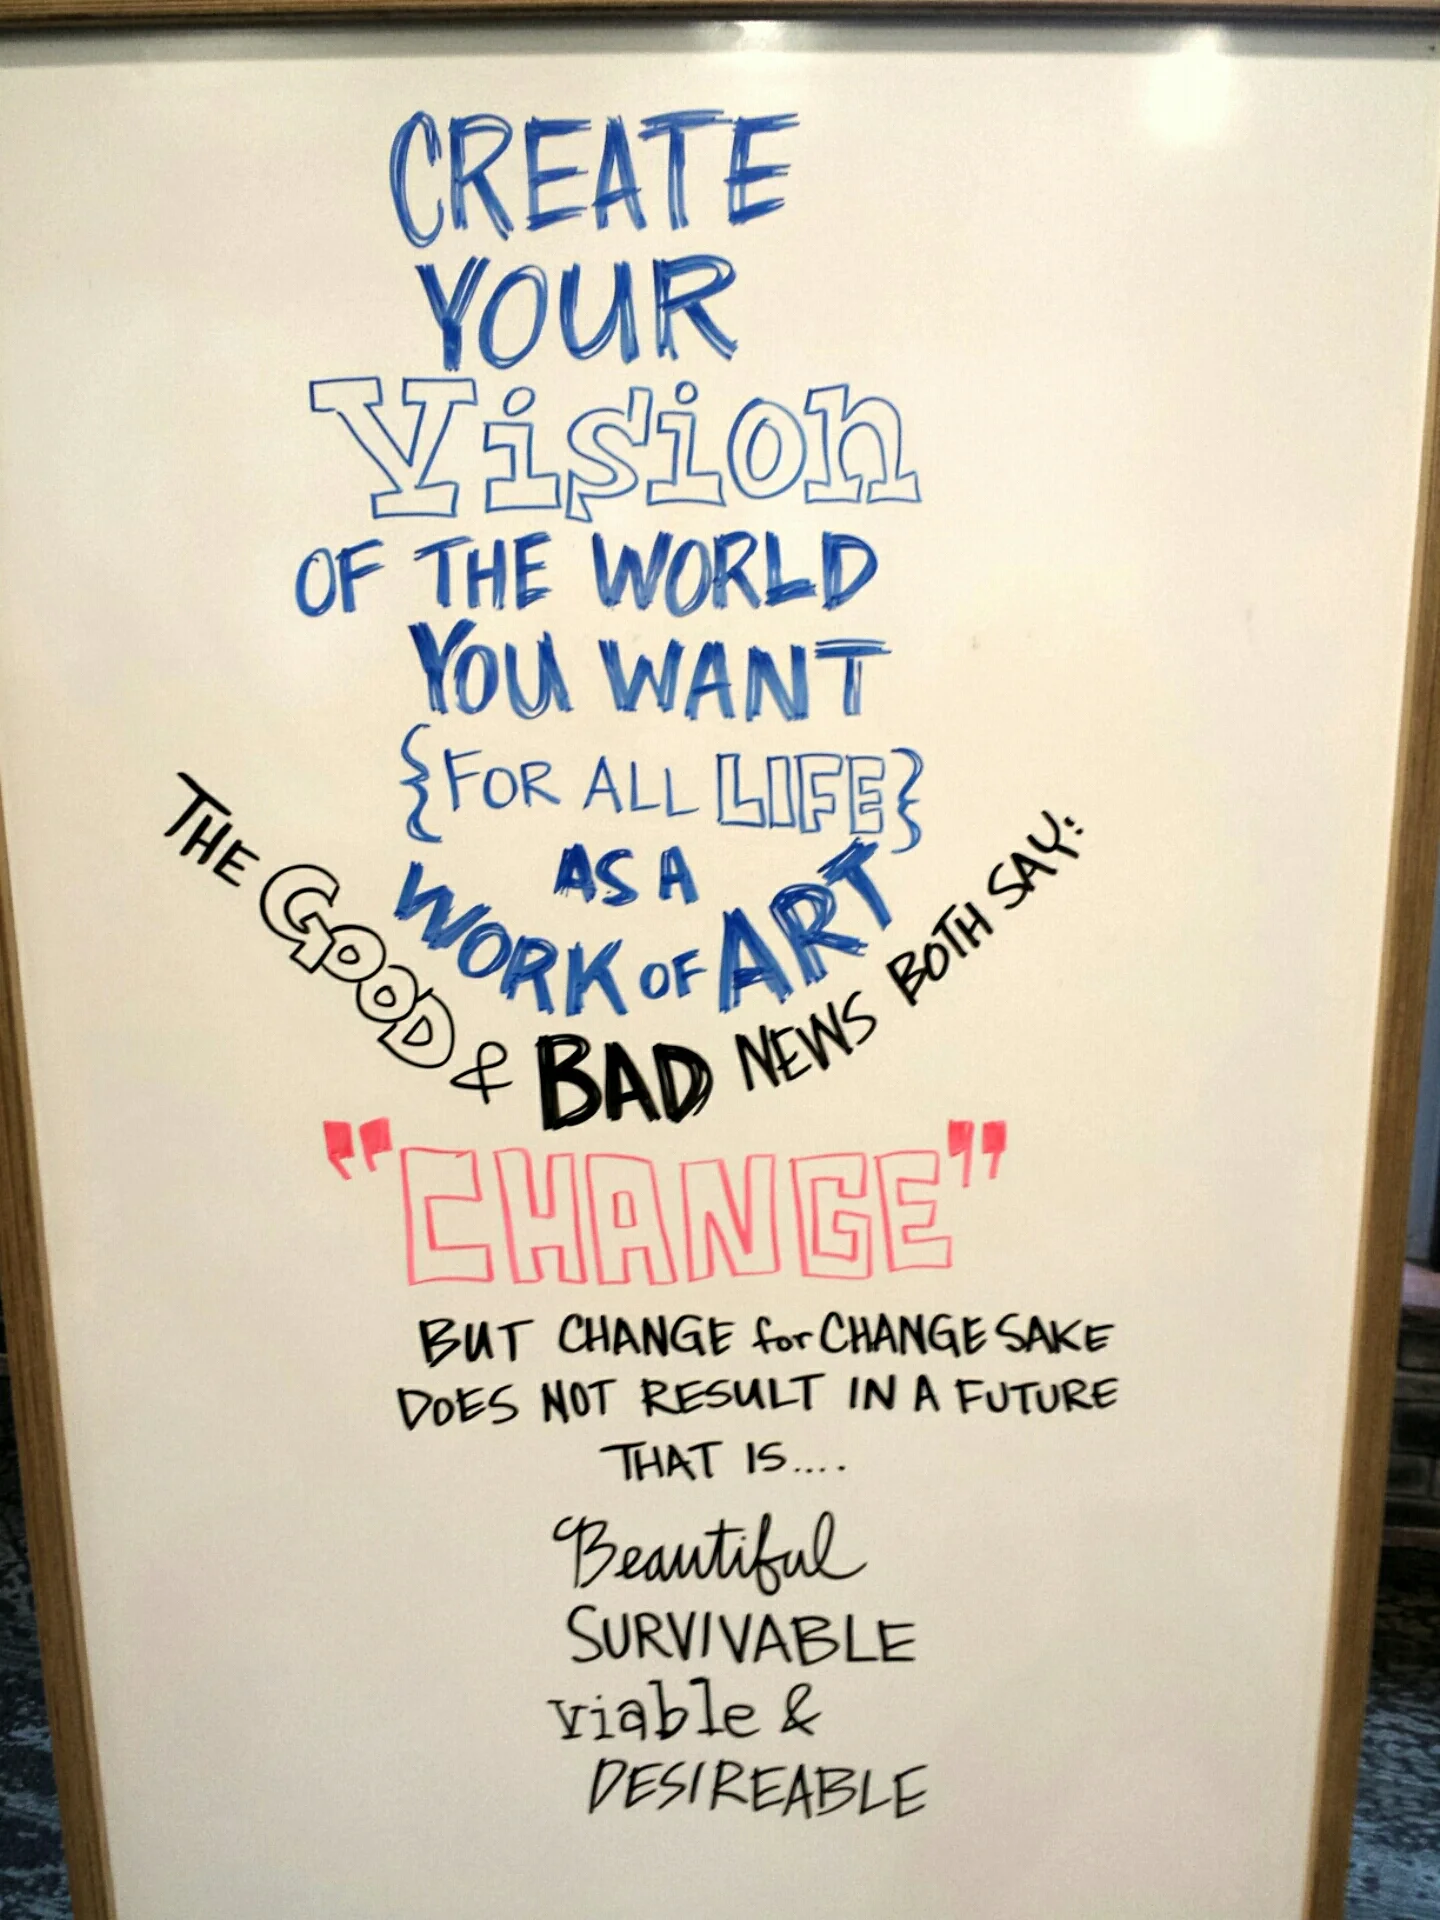 CREATE
YOUR
Vision
OF THE WORLD
YOU WANT
{FOR ALL LIFE}
AS A
WORK OF ART
THE GOOD & BAD NEWS BOTH SAY:
"CHANGE"
BUT CHANGE for CHANGE SAKE
DOES NOT RESULT IN A FUTURE
THAT IS....
Beautiful
SURVIVABLE
viable &
DESIREABLE